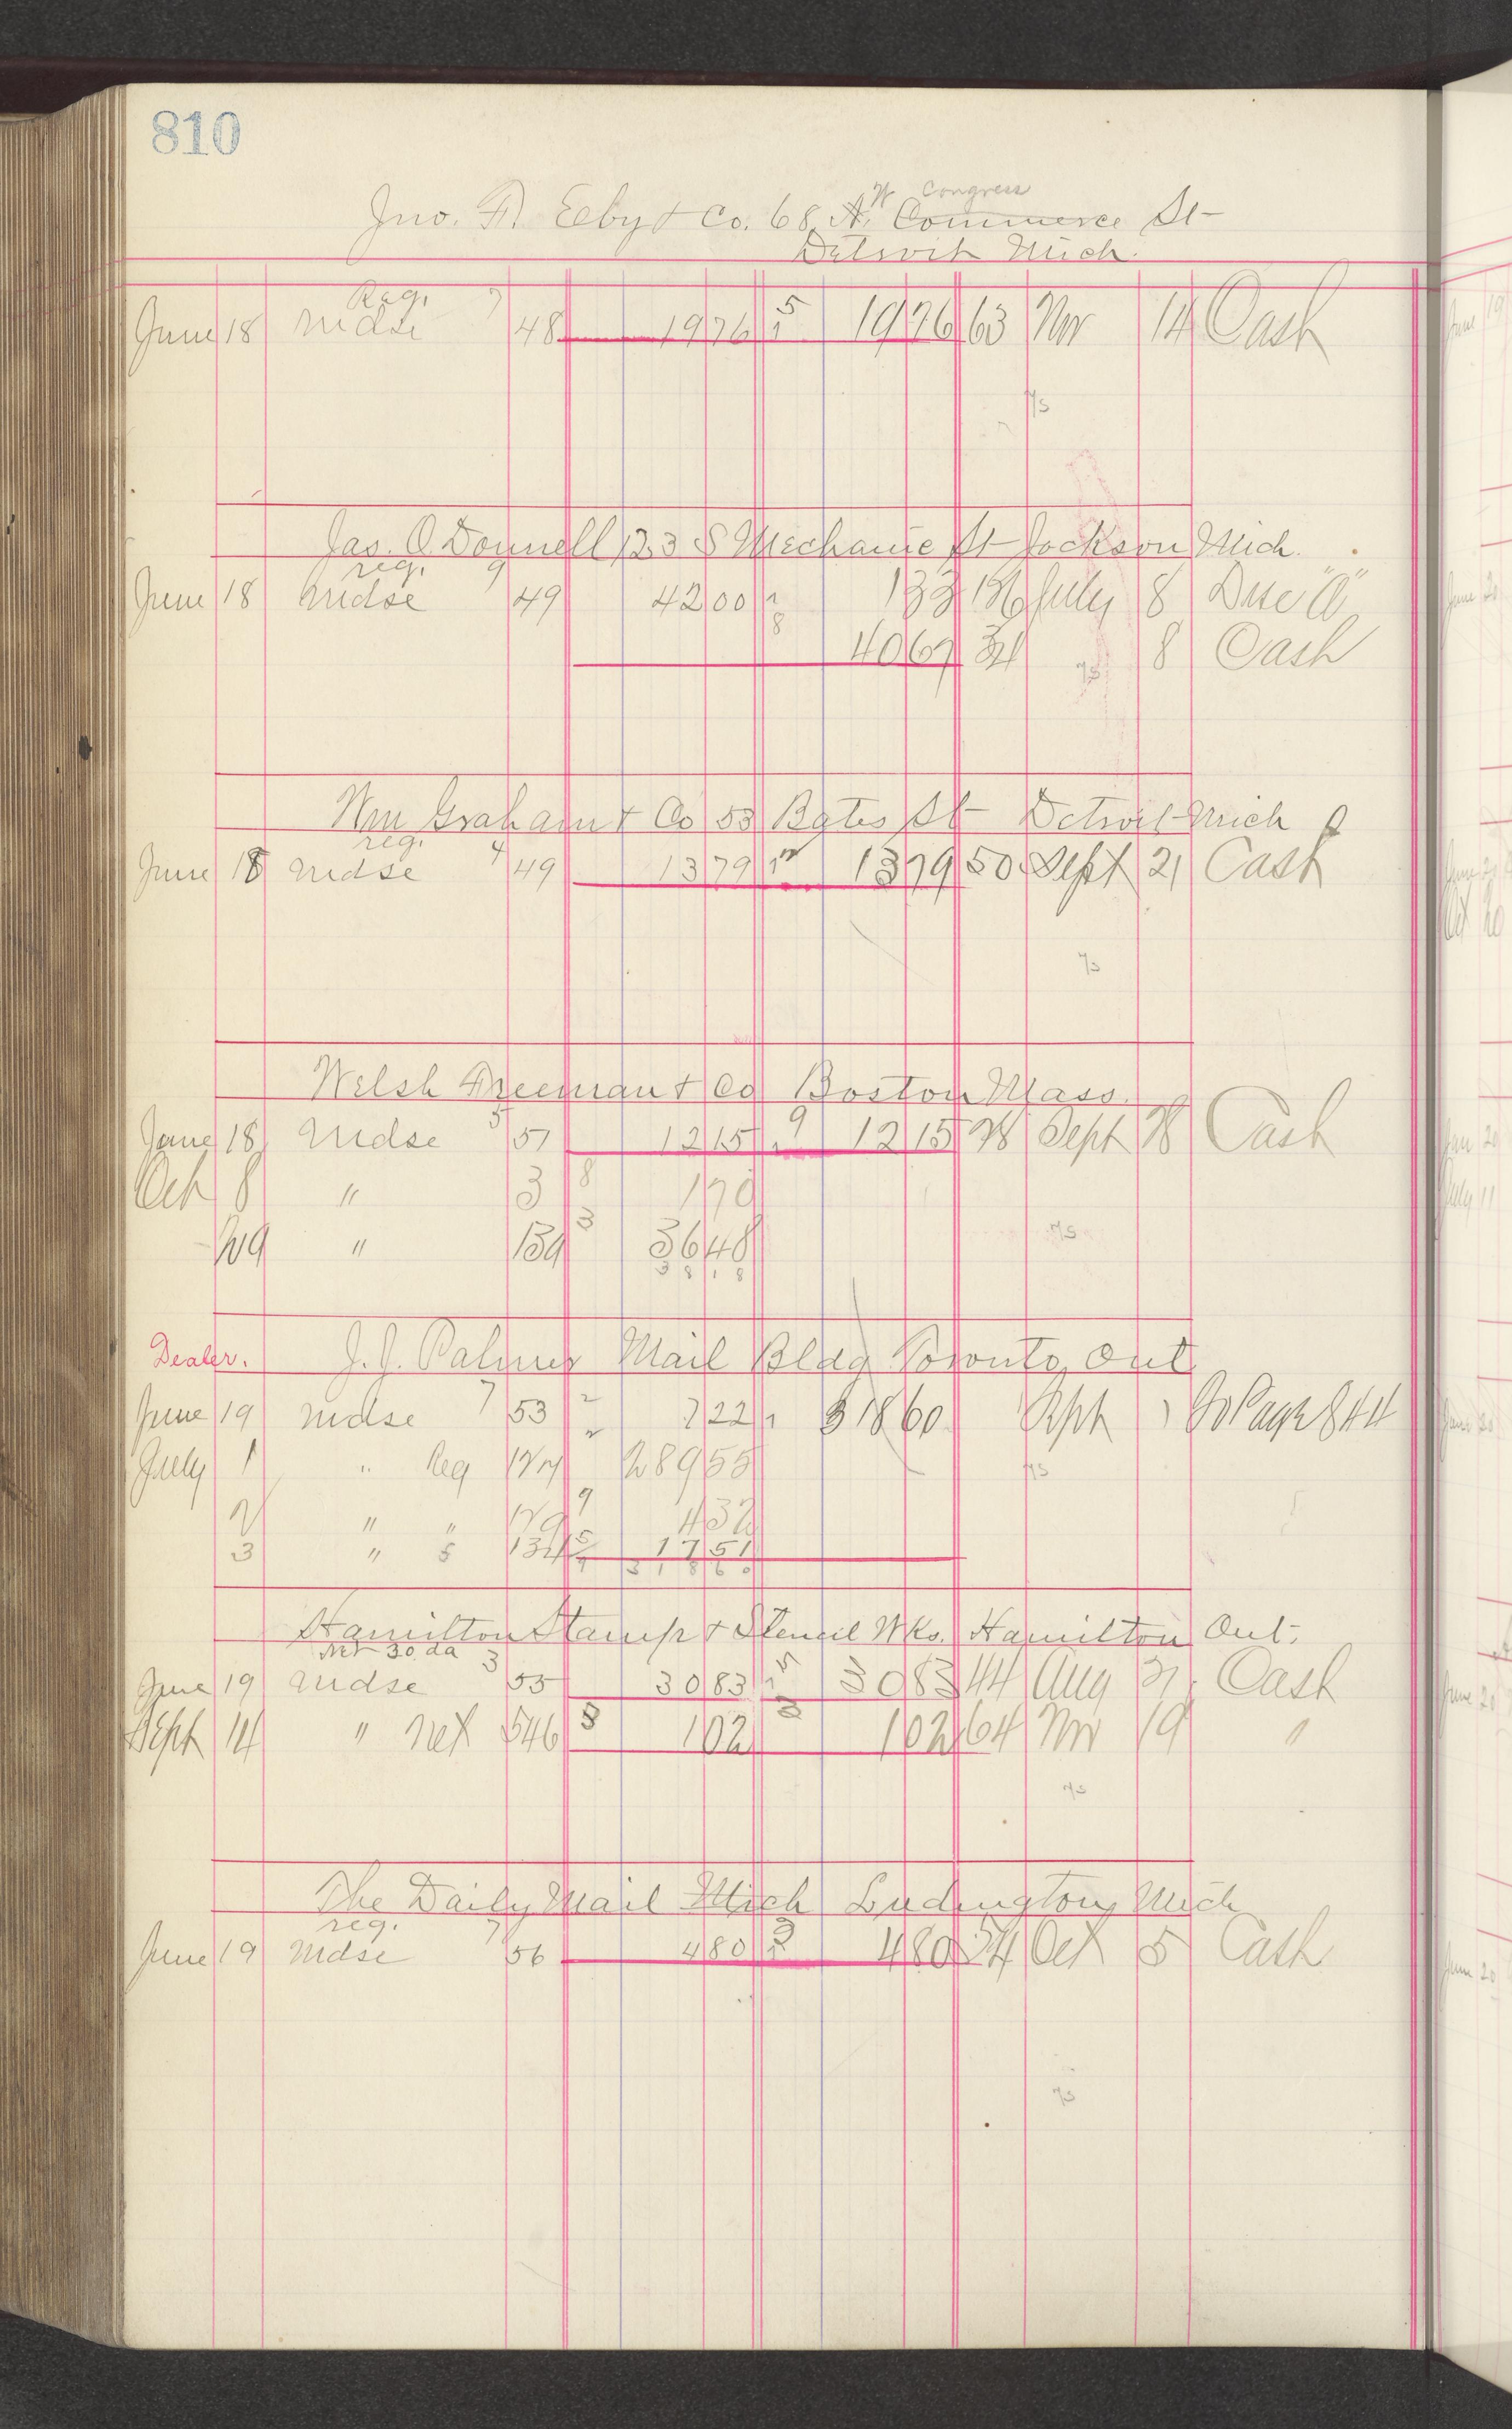 810
W Congress
Jno. F. Eeby & Co. 68 N. Commerce St
Detroit Mich.
Reg. 7
June 18 Mdse 48 19 76 5 19 76 63 Nov 14 Cash
Jas. O Donnell 123 S Mechanic St Jackson Mich.
reg. 9
June 18 Mdse 49 42 00 1 33 July 8 Disc "A"
8 40 67 34 8 Cash
Wm Graham & Co 53 Bates St Detroit Mich
reg. 4
June 18 Mdse 49 13 79 13 79 50 Sept 21 Cash
Welsh Freeman & Co Boston Mass.
June 18 Mdse 5 51 12 15 9 12 15 28 Sept 28 Cash
Oct 8 " 3 8 1 70
" 139 3 36 48
3 8 1 8
Dealer. J. J. Palmer Mail Bldg Toronto, Ont
June 19 Mdse 7 53 2 7 22 318 60 Sept 1 To Page 844
July 1 " Reg 127 289 55
2 " " 129 9 4 32
3 " 5 134 5 17 51
3 1 8 6 0
Hamilton Stamp & Stencil Wks. Hamilton Ont.
Net 30 da 3
June 19 Mdse 55 30 83 5 30 83 44 Aug 21 Cash
Sept 14 " net 546 8 1 02 3 1 02 64 Nov 19 "
The Daily Mail Mich Ludington, Mich
reg. 7
June 19 Mdse 56 4 80 3 4 80 54 Oct 5 Cash